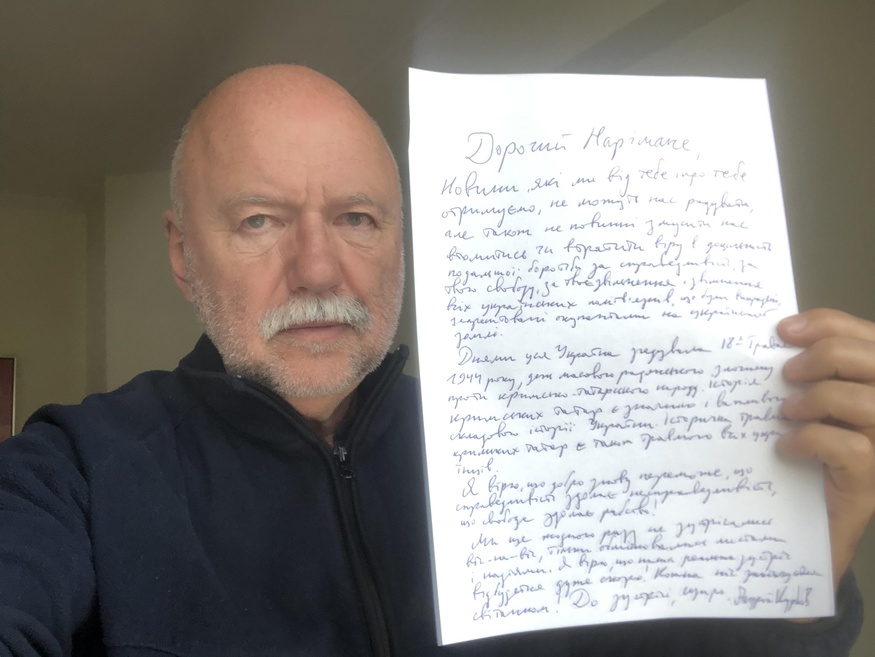 Дорогий Нарімане,
Новини, які ми від тебе і про тебе
отримуємо, не можуть нас радувати,
але також не повинні змусити нас
втомитись чи втратити віру в доцільність
подальшої боротьби за справедливість, за
твою свободу, за твоє звільнення і звільнення
всіх українських, що були
заарештовані окупантами на українській
землі.
Днями уся Україна згадувала 18е Травня
1944 року, день масового радянського злочину
проти кримсько-татарського народу. Історія
кримських татар є значною і важливою
складовою історії України. Історична травма
кримських татар є також травмою всіх украї
їнців.
Я вірю, що добро знову переможе, що
справедливість здолає несправедливість,
що свобода здолає рабство!
Ми ще жодного разу не зустрічались
віч-на-віч, тільки обмінювались листами
і надіями. Я вірю, що наша реальна зустріч
відбудеться дуже скоро. Кожна ніч закінчується
світанком! До зустрічі, щиро. Андрій Курков